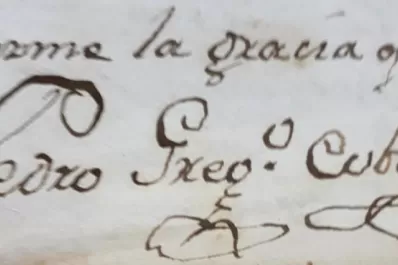 orme la gracia q
Pedro Greg.º Cub